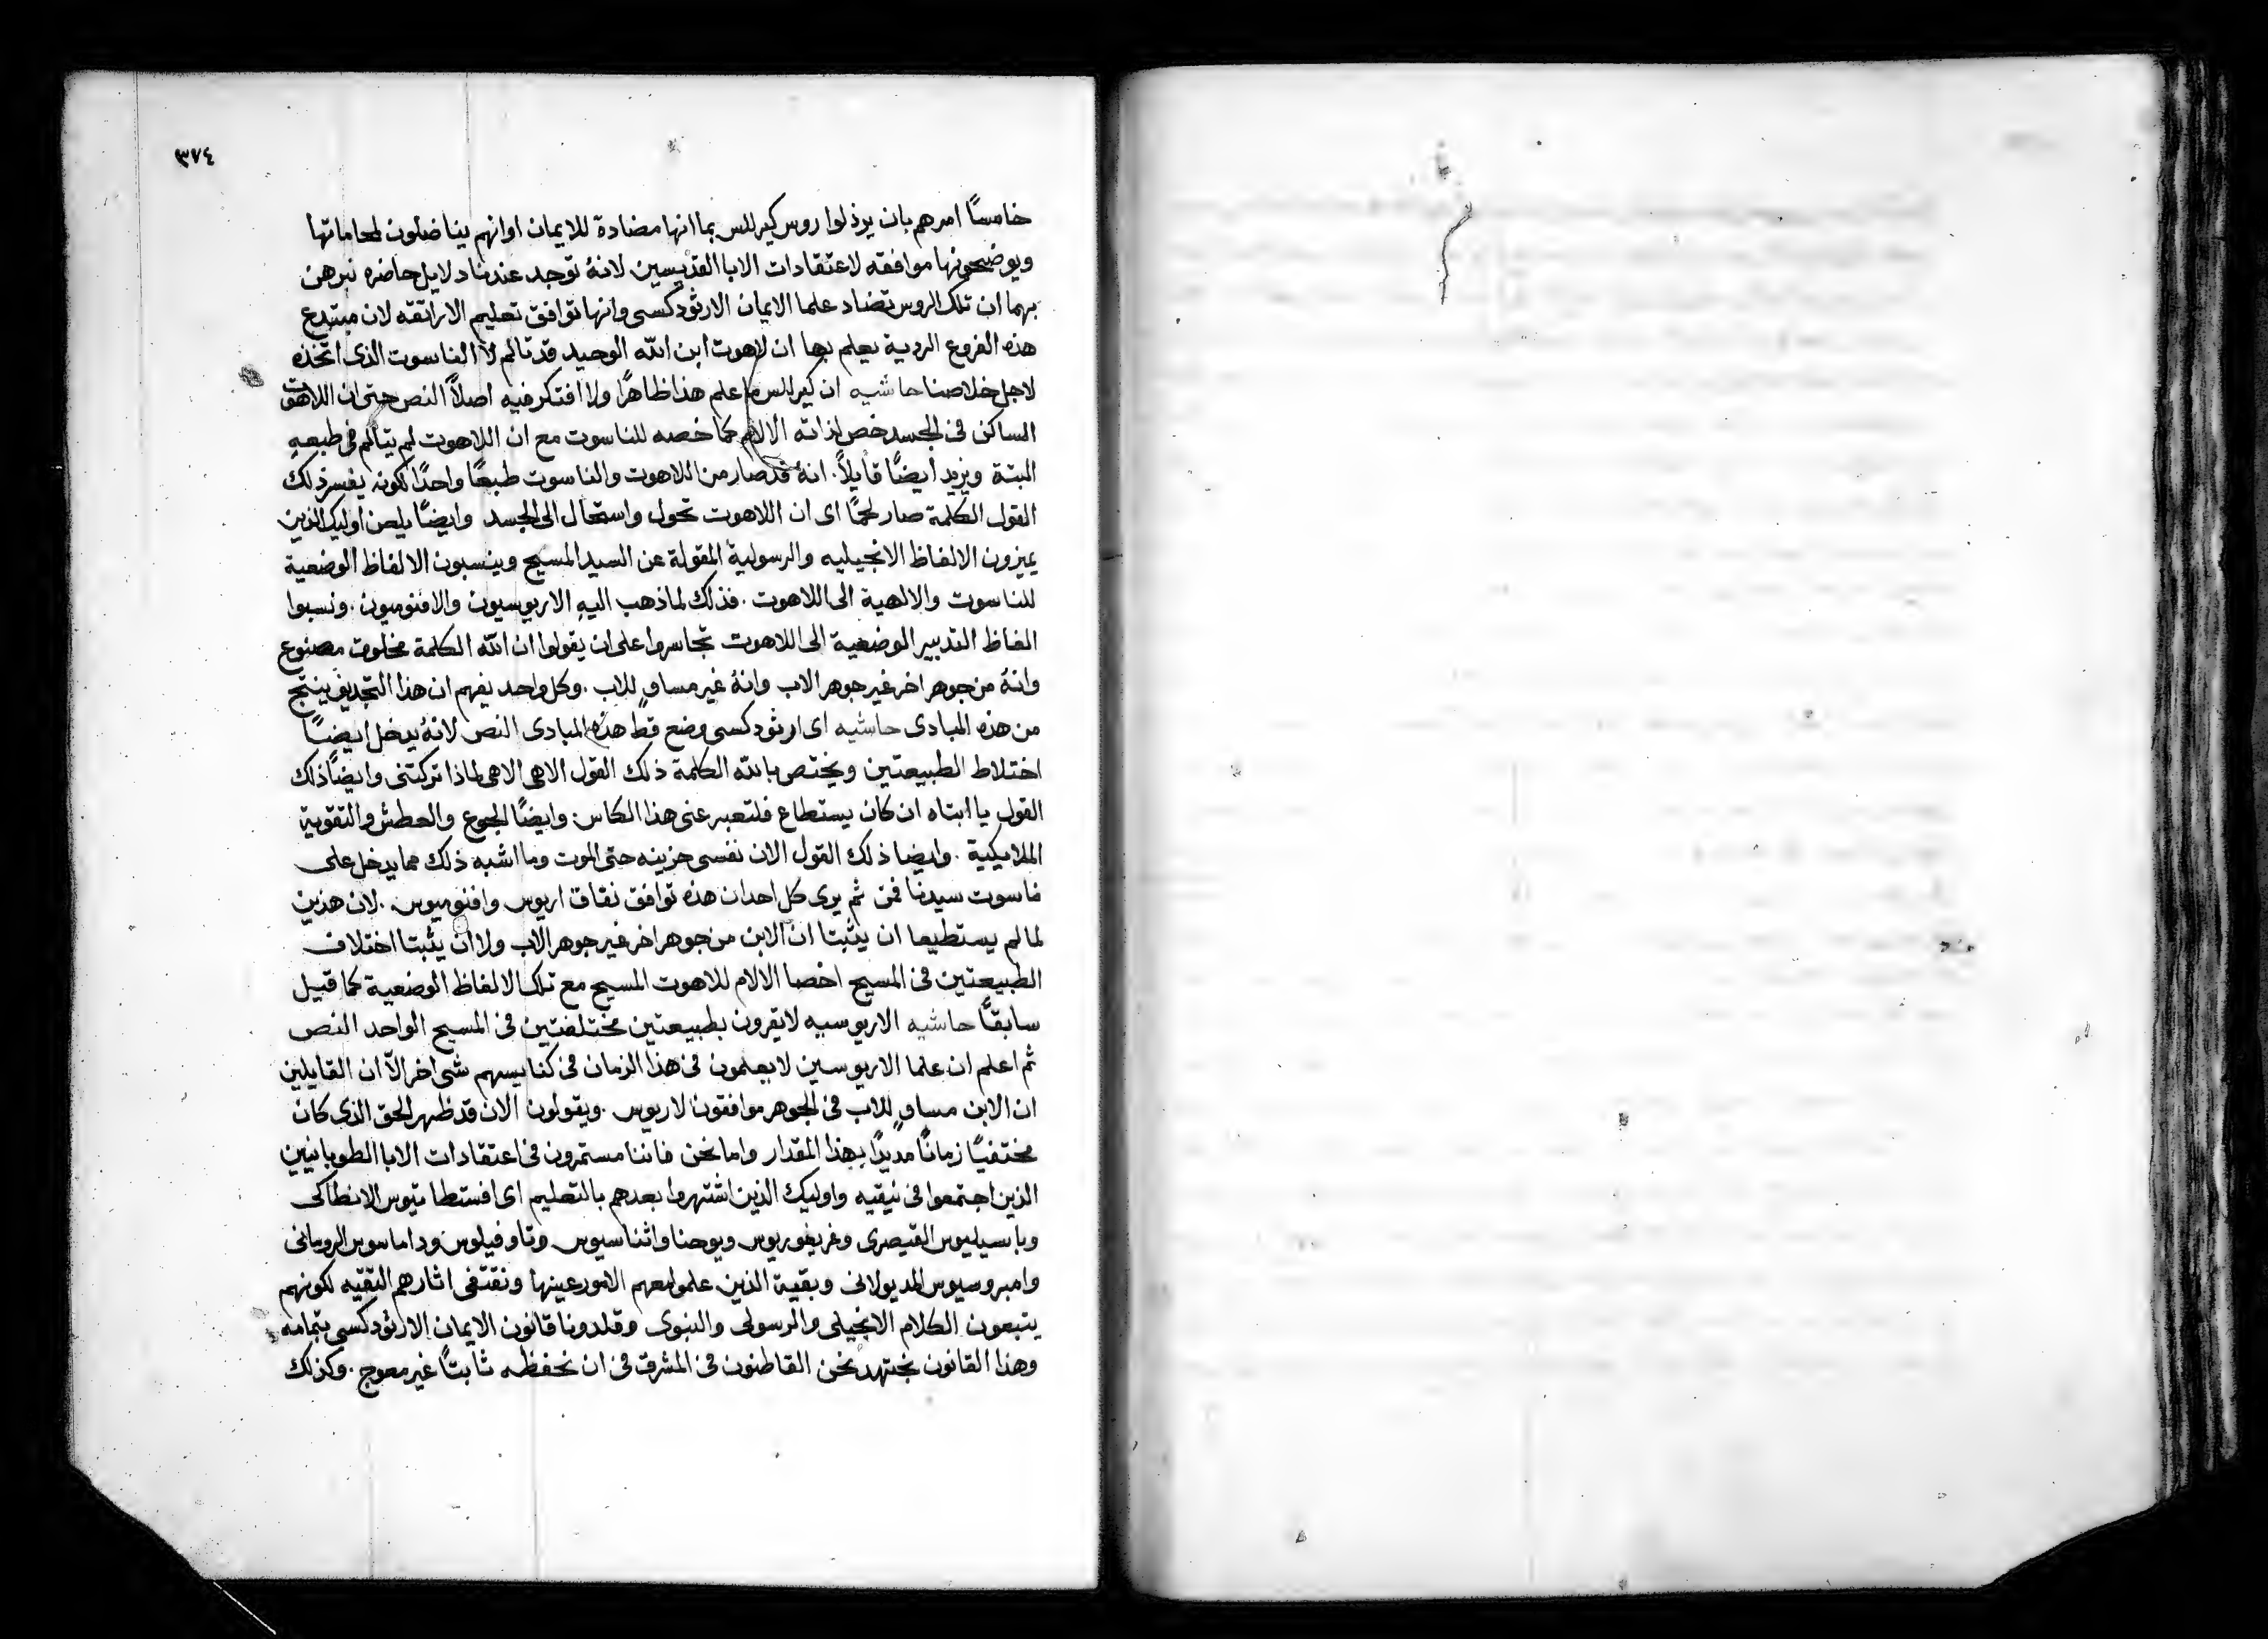 ٣٧٤
خامسًا امرهم بان يرذلوا روس كيرللس بما انها مضادة للايمان او انهم يناضلون لمحاماتها
ويوضحونها موافقه لاعتقادات الابا القديسين لانهُ توجد عندنا دلايل حاضره نبرهن
بهما ان تلك الروس تضاد علما الايمان الارثودكسى وانها توافق تعليم الاراتقه لان مبتدع
هذه الفروع الردية يعلم بها ان لاهوت ابن الله الوحيد قد تالم لا الناسوت الذى اتخذه
لاجل خلاصنا حاشيه ان كيرللس ما علم هذا ظاهرًا ولا افتكر فيه اصلاً النص حتى ان اللاهوت
الساكن فى الجسد خص لذاته الالام كما خصه للناسوت مع ان اللاهوت لم يتالم فى طبعهِ
البتة ويزيد ايضًا قايلاً. انهُ قد صار من اللاهوت والناسوت طبعًا واحدًا لكونه يفسر ذلك
القول الكلمة صار لحمًا اى ان اللاهوت تحول واستحال الى الجسد وايضًا يلعن اوليك الذين
يميزون الالفاظ الانجيليه والرسولية المقولة عن السيد المسيح وينسبون الالفاظ الوضعية
للناسوت والالهية الى اللاهوت. فذلك لما ذهب اليهِ الاريوسيون والافنوميون. ونسبوا
الفاظ التدبير الوضعية الى اللاهوت تجاسروا على ان يقولوا ان الله الكلمة مخلوق مصنوع
وانهُ من جوهر اخر غير جوهر الاب وانهُ غير مساوٍ للاب. وكل واحد يفهم ان هذا التجديف ينتج
من هذه المبادى حاشيه اى ارثودكسى وضع قط هذه المبادى النص لانهُ يدخل ايضًا
اختلاط الطبيعتين ويختص بالله الكلمة ذلك القول الاهى الاهى لماذا تركتنى وايضًا ذلك
القول يا ابتاه ان كان يستطاع فلتعبر عنى هذا الكاس: وايضًا الجوع والعطش والتقوية
الملايكية. وايضا ذلك القول الان نفسى حزينه حتى الموت وما اشبه ذلك مما يدخل على
ناسوت سيدنا فمن ثم يرى كل احد ان هذه توافق نفاق اريوس وافنوميوس. لان هذين
لما لم يستطيعا ان يثبتا ان الابن من جوهر اخر غير جوهر الاب ولا ان يثبتا اختلاف
الطبيعتين فى المسيح اخصا الالام للاهوت المسيح مع تلك الالفاظ الوضعية كما قيل
سابقًا حاشيه الاريوسيه لا يقرون بطبيعتين مختلفتين فى المسيح الواحد النص
ثم اعلم ان علما الاريوسين لا يعلمون فى هذا الزمان فى كنايسهم شى اخر الاّ ان القايلين
ان الابن مساوٍ للاب فى الجوهر موافقون لاريوس. ويقولون الان قد ظهر الحق الذى كان
مختفيًا زمانًا مديدًا بهذا المقدار واما نحن فاننا مستمرون فى اعتقادات الابا الطوبانيين
الذين اجتمعوا فى نيقيه واوليك الذين اشتهروا بعدهم بالتعليم اى افستطاتيوس الانطاكى
وباسيليوس القيصرى وغريغوريوس ويوحنا واثناسيوس وتاوفيلوس وداماسوس الرومانى
وامبروسيوس المديولانى وبقية الذين علموا معهم الامور عينها ونقتفى اثارهم التقيه لكونهم
يتبعون الكلام الانجيلى والرسولى والنبوى وقلدونا قانون الايمان الارثودكسى بتمامه
وهذا القانون نجتهد نحن القاطنون فى المشرق فى ان نحفظه ثابتًا غير معوج. وكذلك